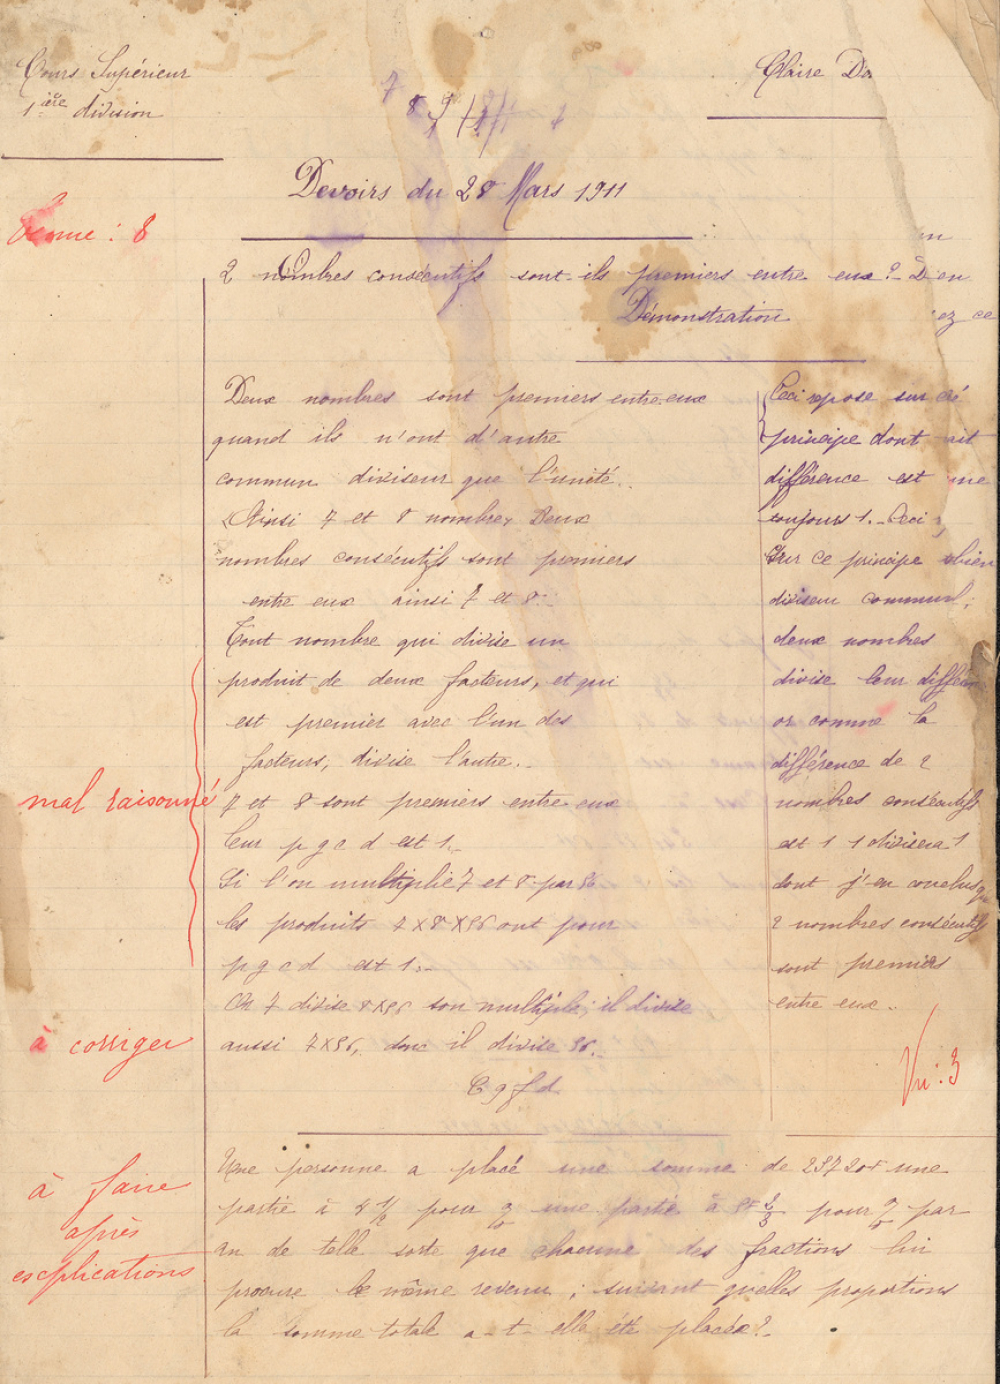 Cours Supérieur
1ière division
Claire Do
Devoirs du 28 Mars 1911
Tenue : 8
2 nombres consécutifs sont-ils premiers entre eux ? D en
Démonstration
ez ce
Deux nombres sont premiers entre eux
quand ils n'ont d'autre
commun diviseur que l'unité.
Ainsi 7 et 8 nombres Deux
nombres consécutifs sont premiers
entre eux ainsi 7 et 8.
Tout nombre qui divise un
produit de deux facteurs, et qui
est premier avec l'un des
facteurs, divise l'autre.
7 et 8 sont premiers entre eux
leur p g c d est 1.
Si l'on multiplie 7 et 8 par 96
les produits 7 X 8 X 96 ont pour
p g c d est 1.
Or 7 divise 8X96 son multiple, il divise
aussi 7X96, donc il divise 96.
C q f d
mal raisonné
à corriger
Ceci repose sur
principe dont
différence est
toujours 1. Ceci
Sur ce principe
diviseur commun,
deux nombres
divise leur différen
or comme la
différence de 2
nombres consécutifs
est 1 1 divisera 1
dont j'en conclus q
2 nombres consécutifs
sont premiers
entre eux.
Vu : 3
à faire
après
explications
Une personne a placé une somme de une
partie à pour une partie à pour par
an de telle sorte que chacune des fractions lui
procure le même revenu ; suivant quelles proportions
la somme totale a-t-elle été placée ?